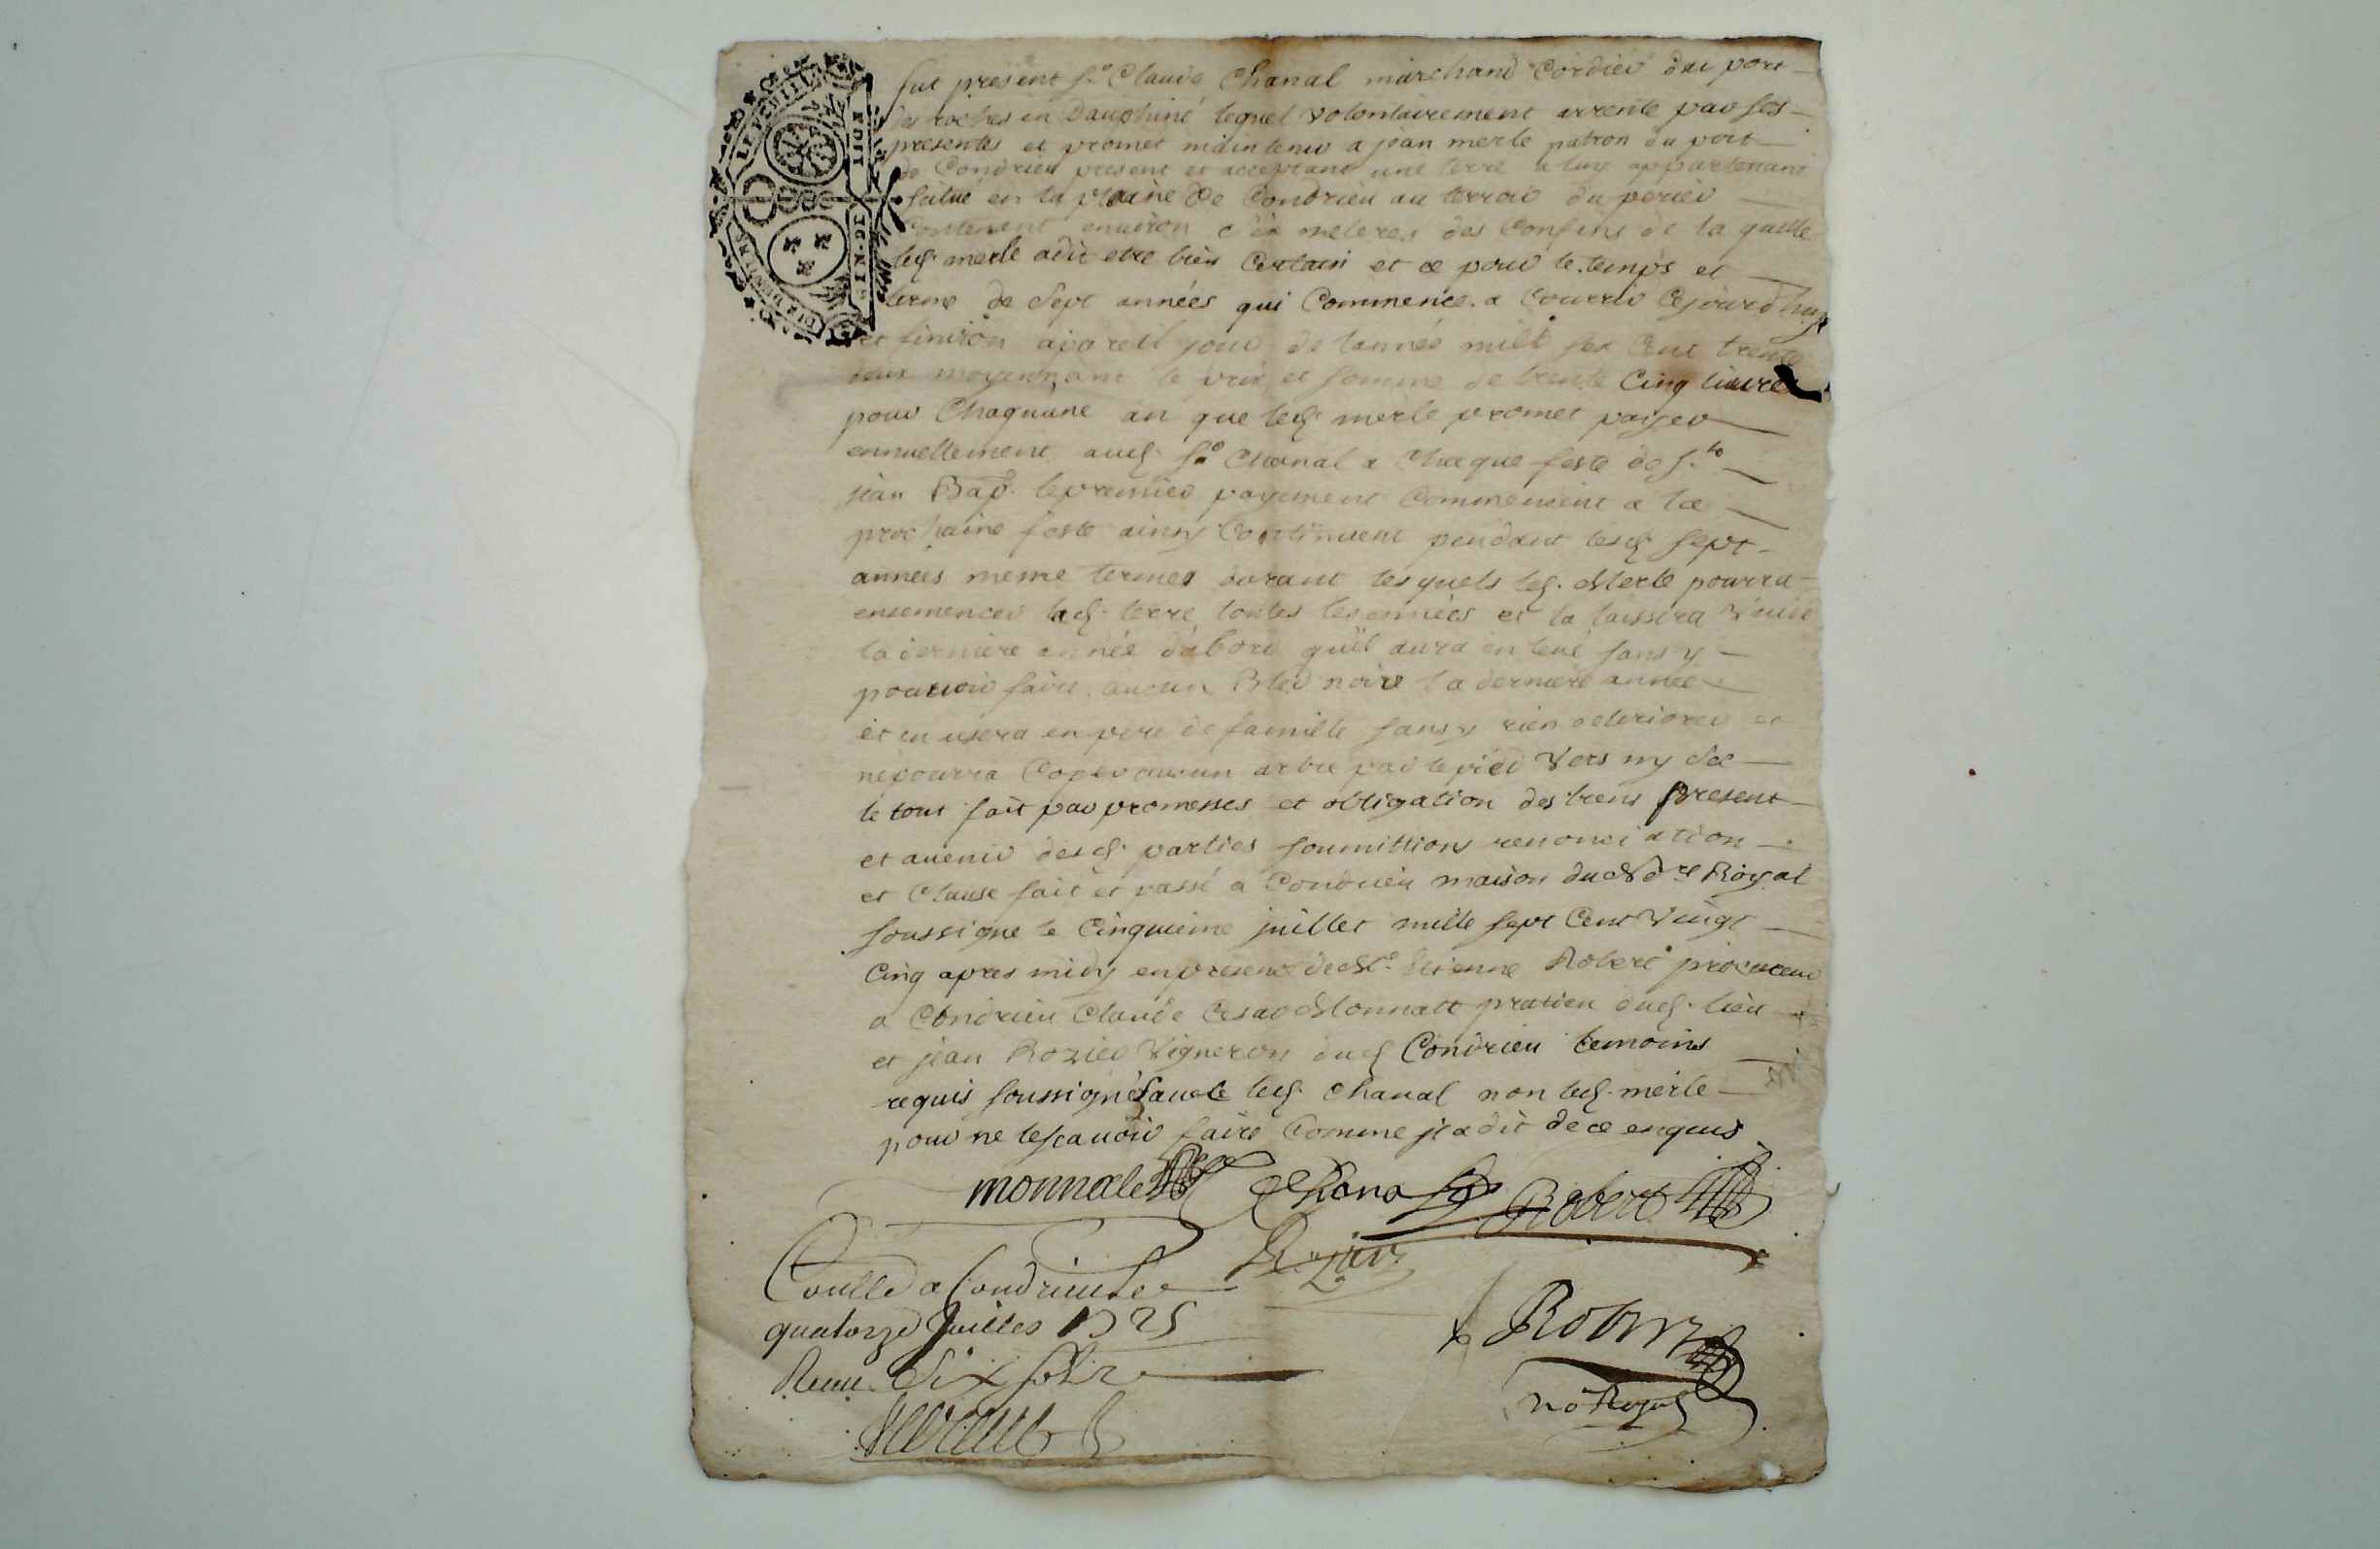 fut present Sr Claude Chanal marchand Cordier du port
des roches en Dauphiné lequel volontairement arrente par ses
presentes et promet maintenir a jean merle patron du port
de Condrieu present et acceptant une terre a luy appartenant
situé en la plaine De Condrieu au terroir du perier
Contenent environ six meteres des Confins de la quelle
led. merle a dit etre bien Certain et ce pour le temps et
terme de Sept années qui Commence a Courrir Cejourd'huy
et finiron a pareil jour de lannée mille sept Cent trente
deux moyennant le prix et somme de trente Cinq livres
pour Chaquune an que led. merle promet paijer
ennuellement aud. Sr Chanal a Chaque feste de St
jean Bap. le premier payement Commencent a la
prochaine feste ainsy Continuent pendant lesd. sept
années meme termes durant lesquels led. Merle pourra
ensemencer lad. terre toutes les années et la laissera Vuide
la derniere année dabord quil aura enlevé sans y
pouvoir faire aucun Bled noire la derniere année
et en usera en pere de famille sans y rien deteriorer et
ne pourra Coper aucun arbre par le pied Vers ny Sec
le tout fait par promesses et obligation des biens present
et avenir desd. parties soumittions renonciation
et Clause fait et passé a Condrieu maison du Nore Royal
soussigne le Cinquieme juillet mille sept Cent Vingt
Cinq apres midy en presence de Me Etienne Robert procureur
a Condrieu Claude Cesar Monnatt pratien dud. lieu
et jean Rozier Vigneron dud. Condrieu temoins
requis soussignés avec led. Chanal non led. merle
pour ne le scavoir faire Comme il a dit de ce enquis
monnate Chana Robert
Rozier
Conllé a Condrieu Le
quatorze Juillet 1725
Receu Six sols
Robert
No Royal